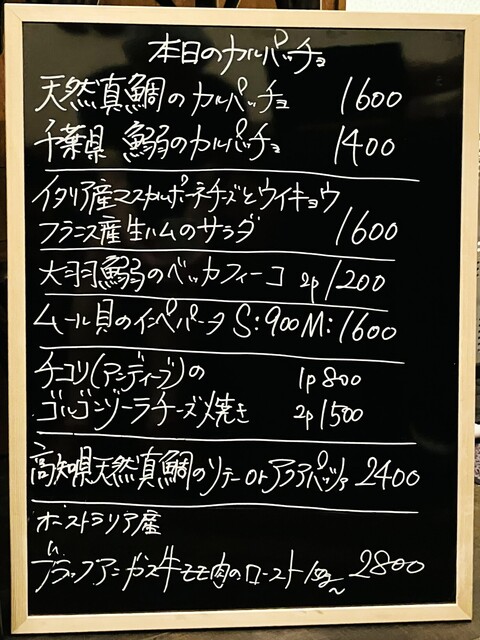 本日のカルパッチョ
天然真鯛のカルパッチョ 1600
千葉県 鰯のカルパッチョ 1400
イタリア産マスカルポーネチーズとウイキョウ
フランス産生ハムのサラダ 1600
大羽鰯のベッカフィーコ 2p 1200
ムール貝のインペパータ S:900 M:1600
チコリ(アンディーブ)の 1p 800
ゴルゴンゾーラチーズ焼き 2p 1500
高知県天然真鯛のソテー or アクアパッツァ 2400
オーストラリア産
ブラックアンガス牛モモ肉のロースト 2800